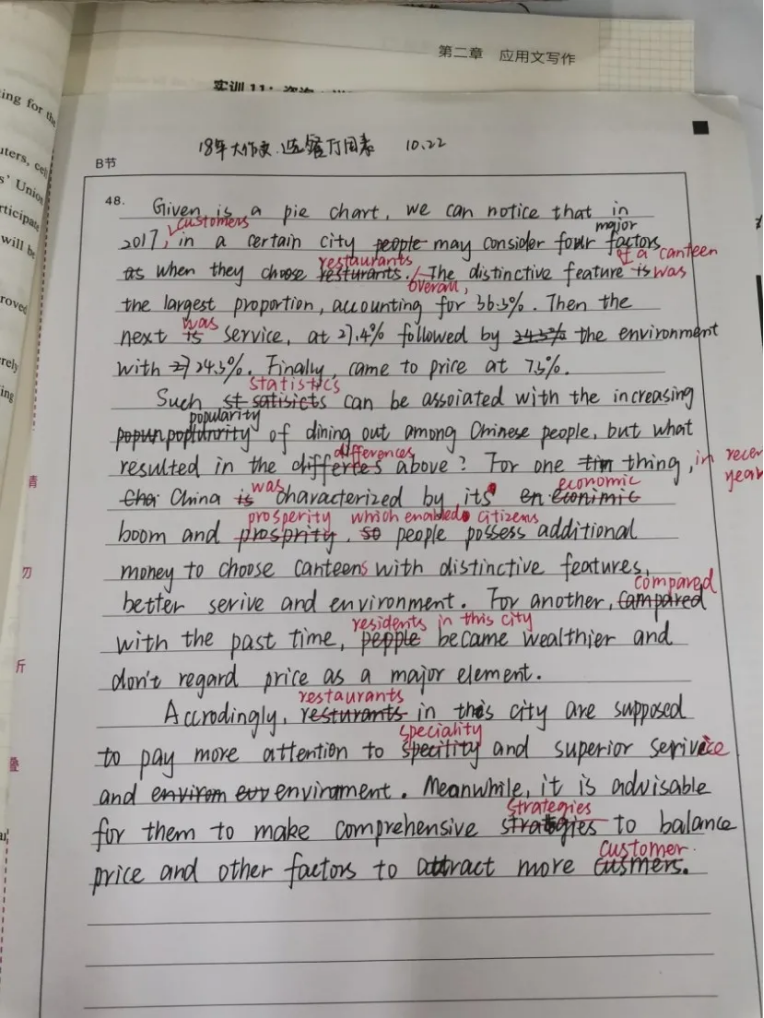 第二章 应用文写作
实训11:
ting for the
uters, cel
s' Union
rticipate
will be
roved
rely
ing
18年大作文 选餐厅因素 10.22
B节
48. Given is a pie chart, we can notice that in
customers major
2017, in a certain city people may consider four factors
restaurants of a canteen
as when they choose resturants. The distinctive feature is was
overall,
the largest proportion, accounting for 36.3%. Then the
was
next is service, at 27.4% followed by 24.3% the environment
with 27 24.3%. Finally, came to price at 7.3%.
statistics
Such st satisicts can be assoiated with the increasing
popularity
popun poplunrity of dining out among Chinese people, but what
differences
resulted in the differces above? For one tim thing, in recen
was economic year
Cha China is characterized by its en econimic
prosperity which enabled citizens
boom and prosprity, so people possess additional
money to choose canteens with distinctive features,
compared
better serive and environment. For another, campared
residents in this city
with the past time, pepple became wealthier and
don't regard price as a major element.
restaurants
Accrodingly, resturants in this city are supposed
speciality
to pay more attention to specility and superior serivice
and environ env enviroment. Meanwhile, it is advisable
strategies
for them to make comprehensive stratogies to balance
customer.
price and other factors to attract more cusmers.
青
刃
斤